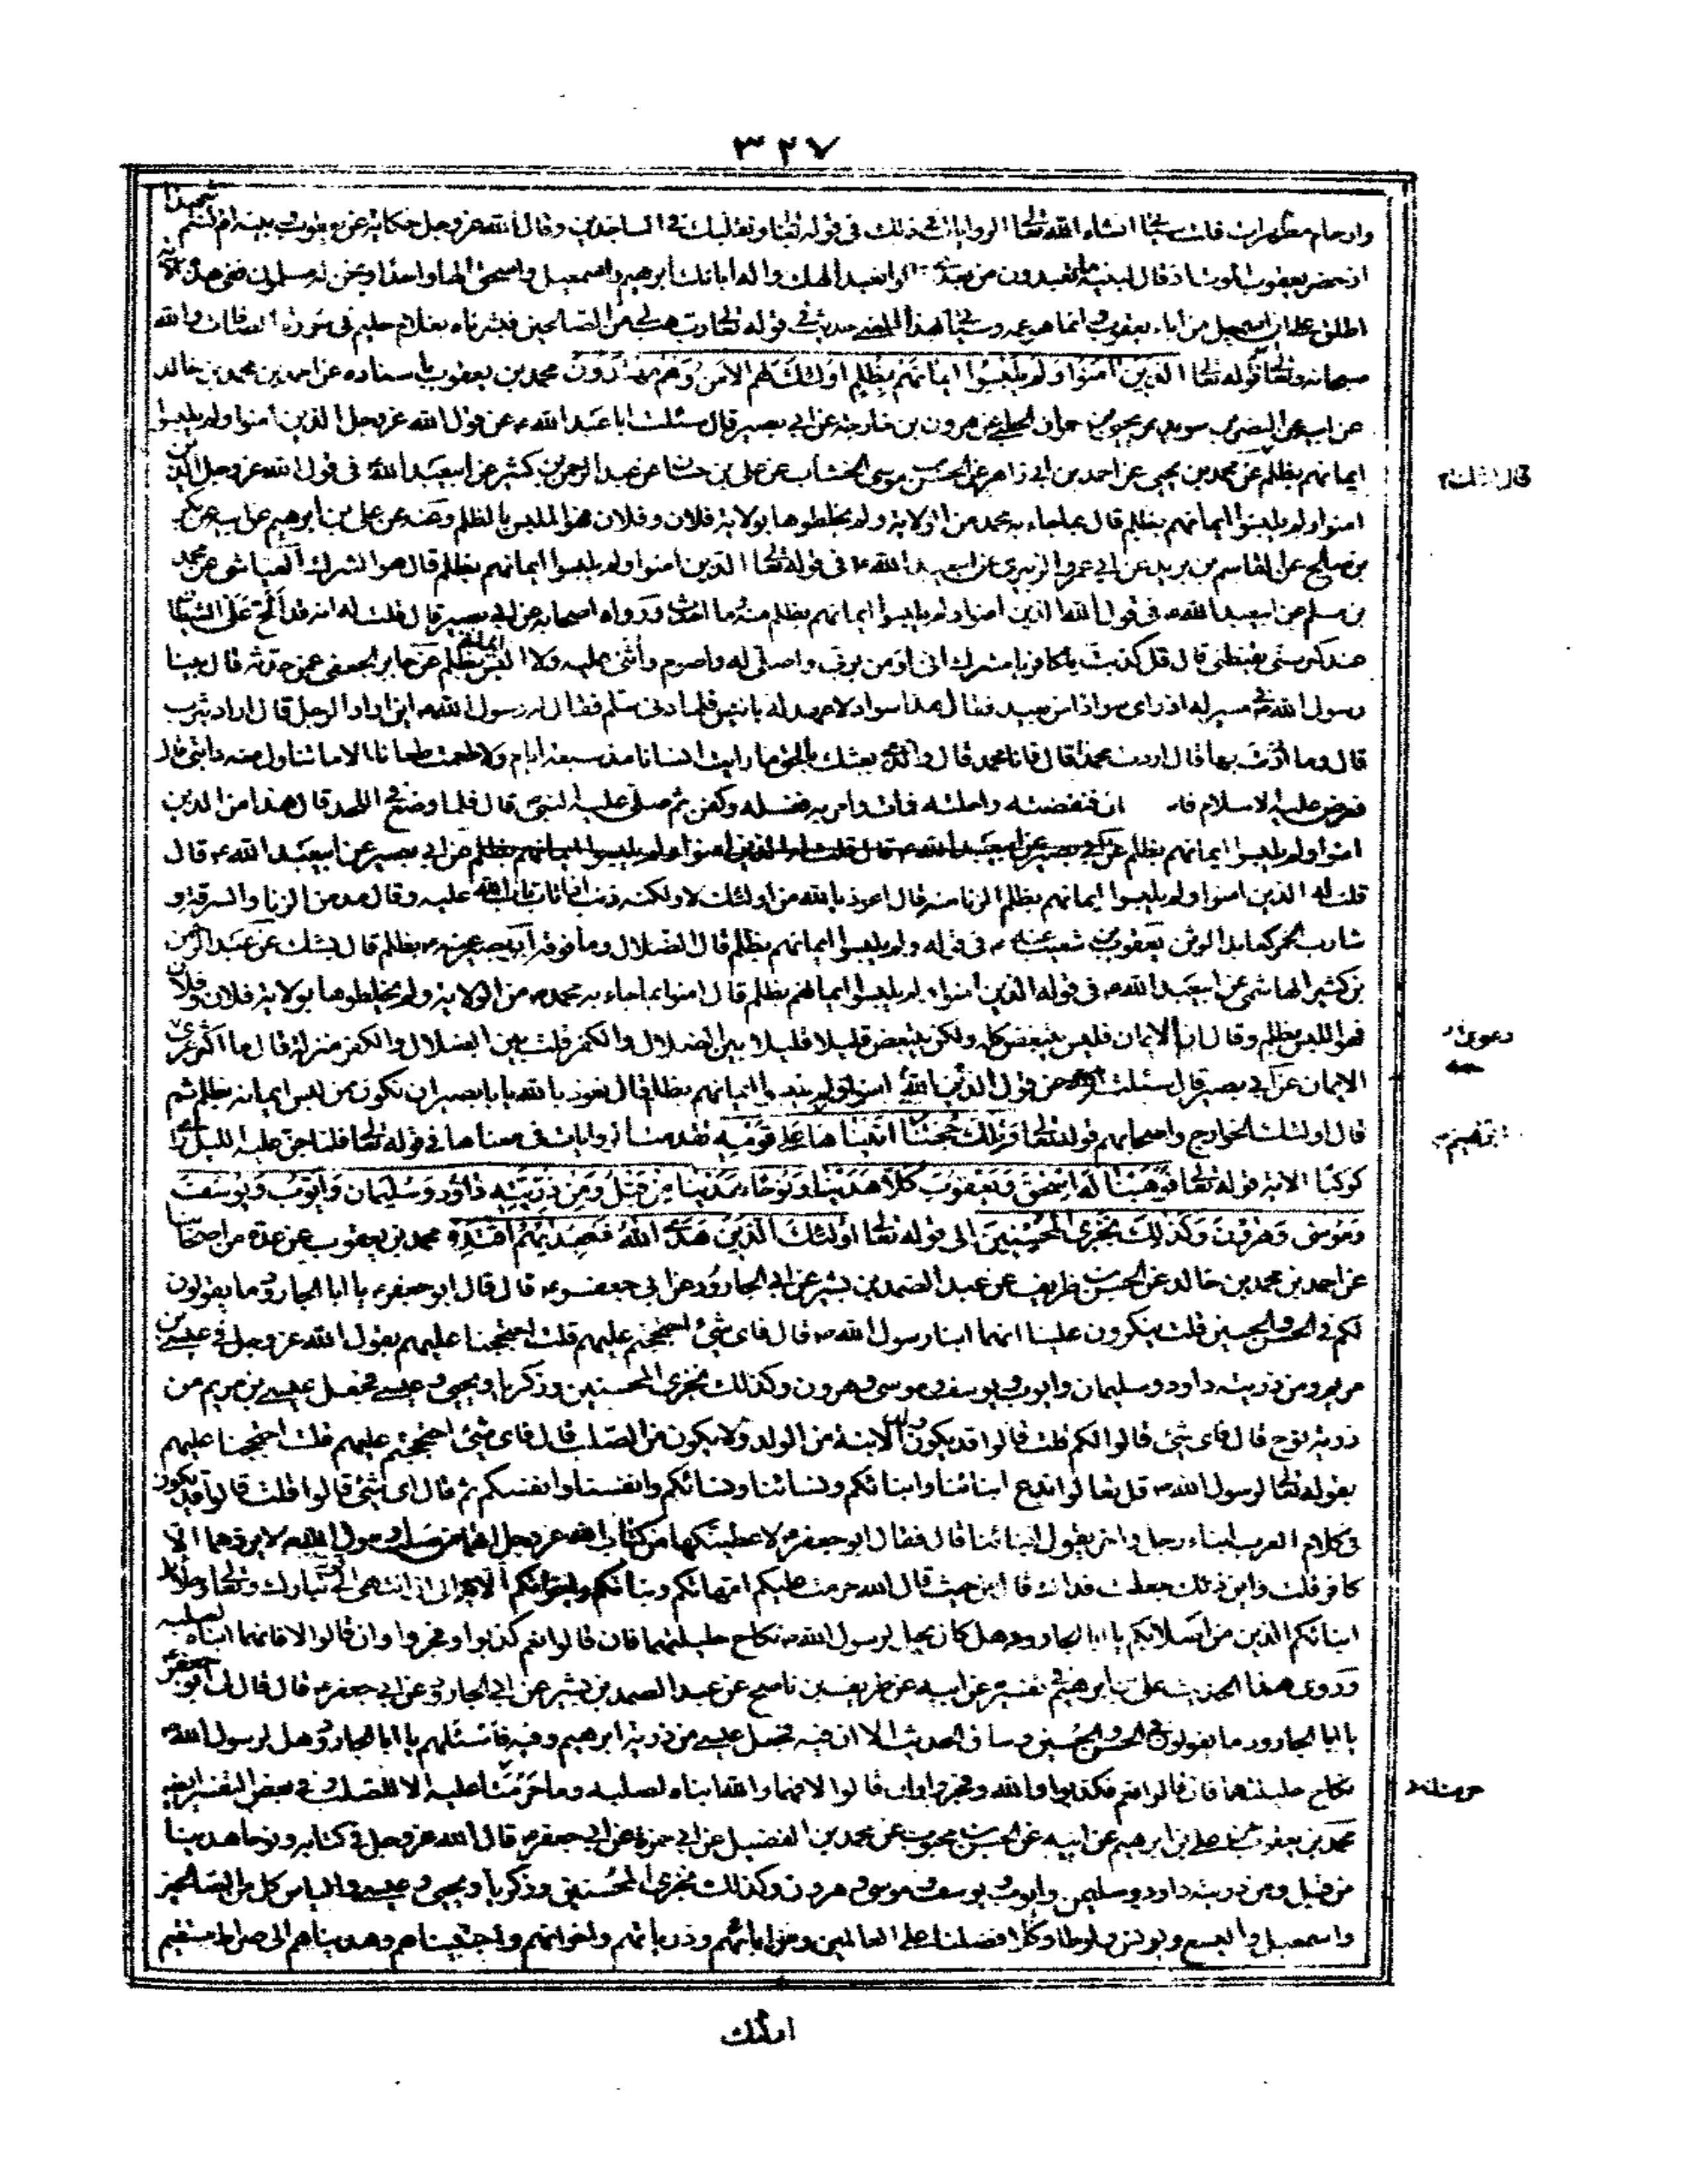 ٣٢٧
وارحام مطهرات قلت سيجئ انشاء الله تعالى الروايات في ذلك في قوله تعالى وتقلبك في الساجدين وقال الله عز وجل حكاية عن يعقوب بنيه ام كنتم شهداء
اذ حضر يعقوب الموت اذ قال لبنيه ما تعبدون من بعدي قالوا نعبد الهك واله ابائك ابرهيم واسمعيل واسحق الها واحدا ونحن له مسلمون ففي هذه الاية
اطلق على اسمعيل من اباء يعقوب وانما هو عمه وسيجئ لهذا المعنى حديث في قوله تعالى رب هب لي من الصالحين فبشرناه بغلام حليم في سورة الصافات والله
سبحانه وتعالى قوله تعالى الذين امنوا ولم يلبسوا ايمانهم بظلم اولئك لهم الامن وهم مهتدون محمد بن يعقوب باسناده عن احمد بن محمد بن خالد
عن ابيه عن النضر بن سويد عن يحيى بن عمران الحلبي عن هرون بن خارجة عن ابي بصير قال سئلت ابا عبد الله ع عن قول الله عز وجل الذين امنوا ولم يلبسوا
ايمانهم بظلم عن محمد بن يحيى عن احمد بن ابي زاهر عن الحسن بن موسى الخشاب عن علي بن حسان عن عبد الرحمن بن كثير عن ابيعبد الله في قول الله عز وجل الذين
امنوا ولم يلبسوا ايمانهم بظلم قال بما جاء به محمد من الولاية ولم يخلطوها بولاية فلان وفلان فهو الملبس بالظلم وعنه عن علي بن ابرهيم عن ابيه عن بكر
بن صالح عن القاسم بن بريد عن ابي عمرو الزبيري عن ابيعبد الله ع في قوله تعالى الذين امنوا ولم يلبسوا ايمانهم بظلم قال هو الشرك العياشي عن محمد
بن مسلم عن ابيعبد الله ع في قول الله الذين امنوا ولم يلبسوا ايمانهم بظلم منه ما احدث زرارة واصحابه عن ابي بصير قال قلت له انه قد الح على الشيطان
عند كبر سني يقنطني قال قل كذبت يا كافر يا مشرك اني اومن بربي واصلي له واصوم واثني عليه ولا البس ايماني بظلم عن جابر الجعفي عمن حدثه قال بينا
رسول الله في مسير له اذ راى سوادا من بعيد فقال هذا سواد لا عهد له بانيس فلما دنى سلم فقال له رسول الله اين اراد الرجل قال اراد يثرب
قال وما اردت بها قال اردت محمدا قال فانا محمد قال والذي بعثك بالحق ما رايت انسانا مذ سبعة ايام ولا طعمت طعاما الا ما تناول منه دابتي قال
فعرض عليه الاسلام فا ان فنفضته راحلته فمات وامر به فغسله وكفن ثم صلى عليه النبي قال فلما وضع في اللحد قال هذا من الذين
امنوا ولم يلبسوا ايمانهم بظلم عن ابي بصير عن ابيعبد الله ع قال
قلت له الذين امنوا ولم يلبسوا ايمانهم بظلم الزنا منه قال اعوذ بالله من اولئك لا ولكنه ذنب اذا تاب تاب الله عليه وقال مدمن الزنا والسرقة و
شارب الخمر كعابد الوثن يعقوب بن شعيب عنه ع في قوله ولم يلبسوا ايمانهم بظلم قال الضلال وما فوقه ابو بصير عنه ع بظلم قال بشك عن عبد الرحمن
بن كثير الهاشمي عن ابيعبد الله ع في قوله الذين امنوا ولم يلبسوا ايمانهم بظلم قال امنوا بما جاء به محمد من الولاية ولم يخلطوها بولاية فلان وفلان
فهو اللبس بظلم وقال اما الايمان فليس يتبعض كله ولكن يتبعض قليلا قليلا بين الضلال والكفر قلت بين الضلال والكفر منزلة قال ما اكثر عرى
الايمان عن ابي بصير قال سئلت عن قول الله الذين امنوا ولم يلبسوا ايمانهم بظلم قال نعوذ بالله يا بابصير ان نكون ممن لبس ايمانه بظلم ثم
قال اولئك الخوارج واصحابهم قوله تعالى وتلك حجتنا اتيناها على قومه تقدمت الروايات في معناها في قوله تعالى فلما جن عليه الليل راى
كوكبا الاية قوله تعالى ووهبنا له اسحق ويعقوب كلا هدينا ونوحا هدينا من قبل ومن ذريته داود وسليمان وايوب ويوسف
وموسى وهرون وكذلك نجزي المحسنين الى قوله تعالى اولئك الذين هدى الله فبهديهم اقتده محمد بن يعقوب عن عدة من اصحابنا
عن احمد بن محمد بن خالد عن الحسن بن ظريف عن عبد الصمد بن بشير عن ابي الجارود عن ابي جعفر ع قال قال ابو جعفر ع يا ابا الجارود ما يقولون
لكم في الحسن والحسين قلت ينكرون علينا انهما ابنا رسول الله ص قال فاي شئ احتججتم عليهم قلت احتججنا عليهم بقول الله عز وجل في عيسى بن
مريم ومن ذريته داود وسليمان وايوب ويوسف وموسى وهرون وكذلك نجزي المحسنين وزكريا ويحيى وعيسى فجعل عيسى بن مريم من
ذرية نوح قال فاي شئ قالوا لكم قلت قالوا قد يكون ولد الابنة من الولد ولا يكون من الصلب قال فاي شئ احتججتم عليهم قلت احتججنا عليهم
بقوله تعالى لرسول الله ص قل تعالوا ندع ابنائنا وابنائكم ونسائنا ونسائكم وانفسنا وانفسكم ثم قال اي شئ قالوا قلت قالوا قد يكون
في كلام العرب ابناء رجل واخر يقول ابنائنا قال فقال ابو جعفر ع لاعطينكها من كتاب الله عز وجل انهما من صلب رسول الله لا يردهما الا
كافر قلت واين ذلك جعلت فداك قال من حيث قال الله حرمت عليكم امهاتكم وبناتكم واخواتكم الاية الى ان انتهى الى قوله تبارك وتعالى وحلائل
ابنائكم الذين من اصلابكم يا ابا الجارود هل كان يحل لرسول الله ص نكاح حليلتهما فان قالوا نعم كذبوا وفجروا وان قالوا لا فانهما ابناه لصلبه
وروى هذا الحديث علي بن ابرهيم في تفسيره عن ابيه عن ظريف بن ناصح عن عبد الصمد بن بشير عن ابي الجارود عن ابي جعفر ع قال قال لي ابو جعفر
يا ابا الجارود ما يقولون في الحسن والحسين وساق الحديث الا ان فيه فجعل عيسى من ذرية ابرهيم وفيه فاسئلهم يا ابا الجارود هل لرسول الله
نكاح حليلتهما فان قالوا نعم فكذبوا والله وفجروا وان قالوا لا فهما والله ابناه لصلبه وما حرمتا عليه الا للصلب وفي بعض التفسير ايضا
محمد بن يعقوب عن علي بن ابرهيم عن ابيه عن الحسن بن محبوب عن محمد بن الفضيل عن ابي حمزة عن ابي جعفر ع قال الله عز وجل في كتابه ونوحا هدينا
من قبل ومن ذريته داود وسليمن وايوب ويوسف وموسى وهرون وكذلك نجزي المحسنين وزكريا ويحيى وعيسى والياس كل من الصالحين
واسمعيل واليسع ويونس ولوطا وكلا فضلنا على العالمين ومن ابائهم وذرياتهم واخوانهم واجتبيناهم وهديناهم الى صراط مستقيم
اولئك